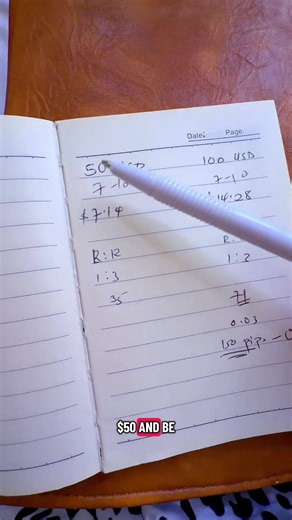 Date: Page
50
7-10
$7.14
R:R
1:3
35
100 USD
7-10
14.28
R:
1:2
71
0.03
150 pips
$50 AND BE